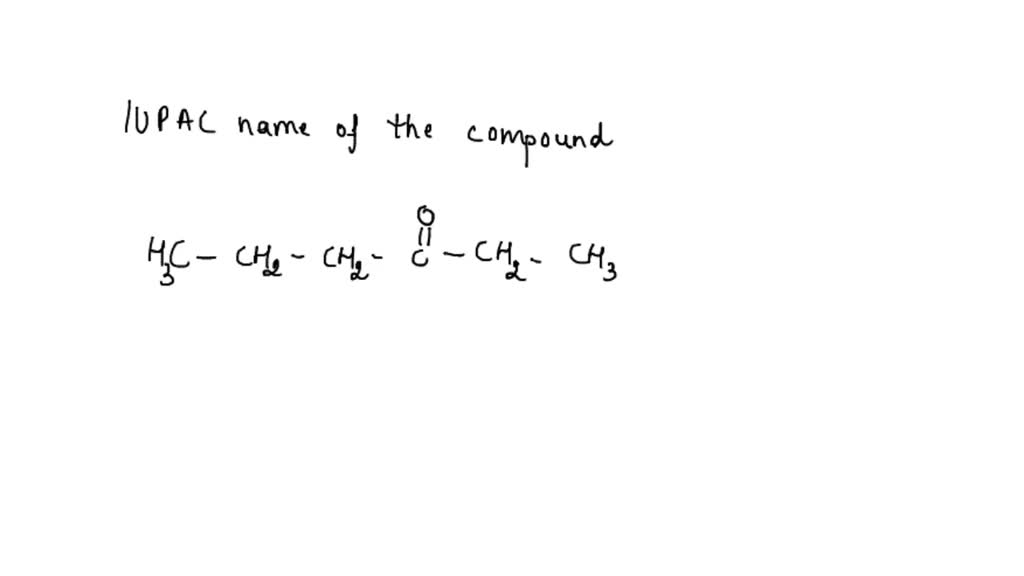 IUPAC name of the compound
O
||
H3C - CH2 - CH2 - C - CH2 - CH3